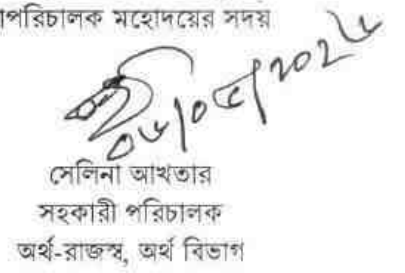 পরিচালক মহোদয়ের সদয়
০৬/০৫/২০২৬
সেলিনা আখতার
সহকারী পরিচালক
অর্থ-রাজস্ব, অর্থ বিভাগ